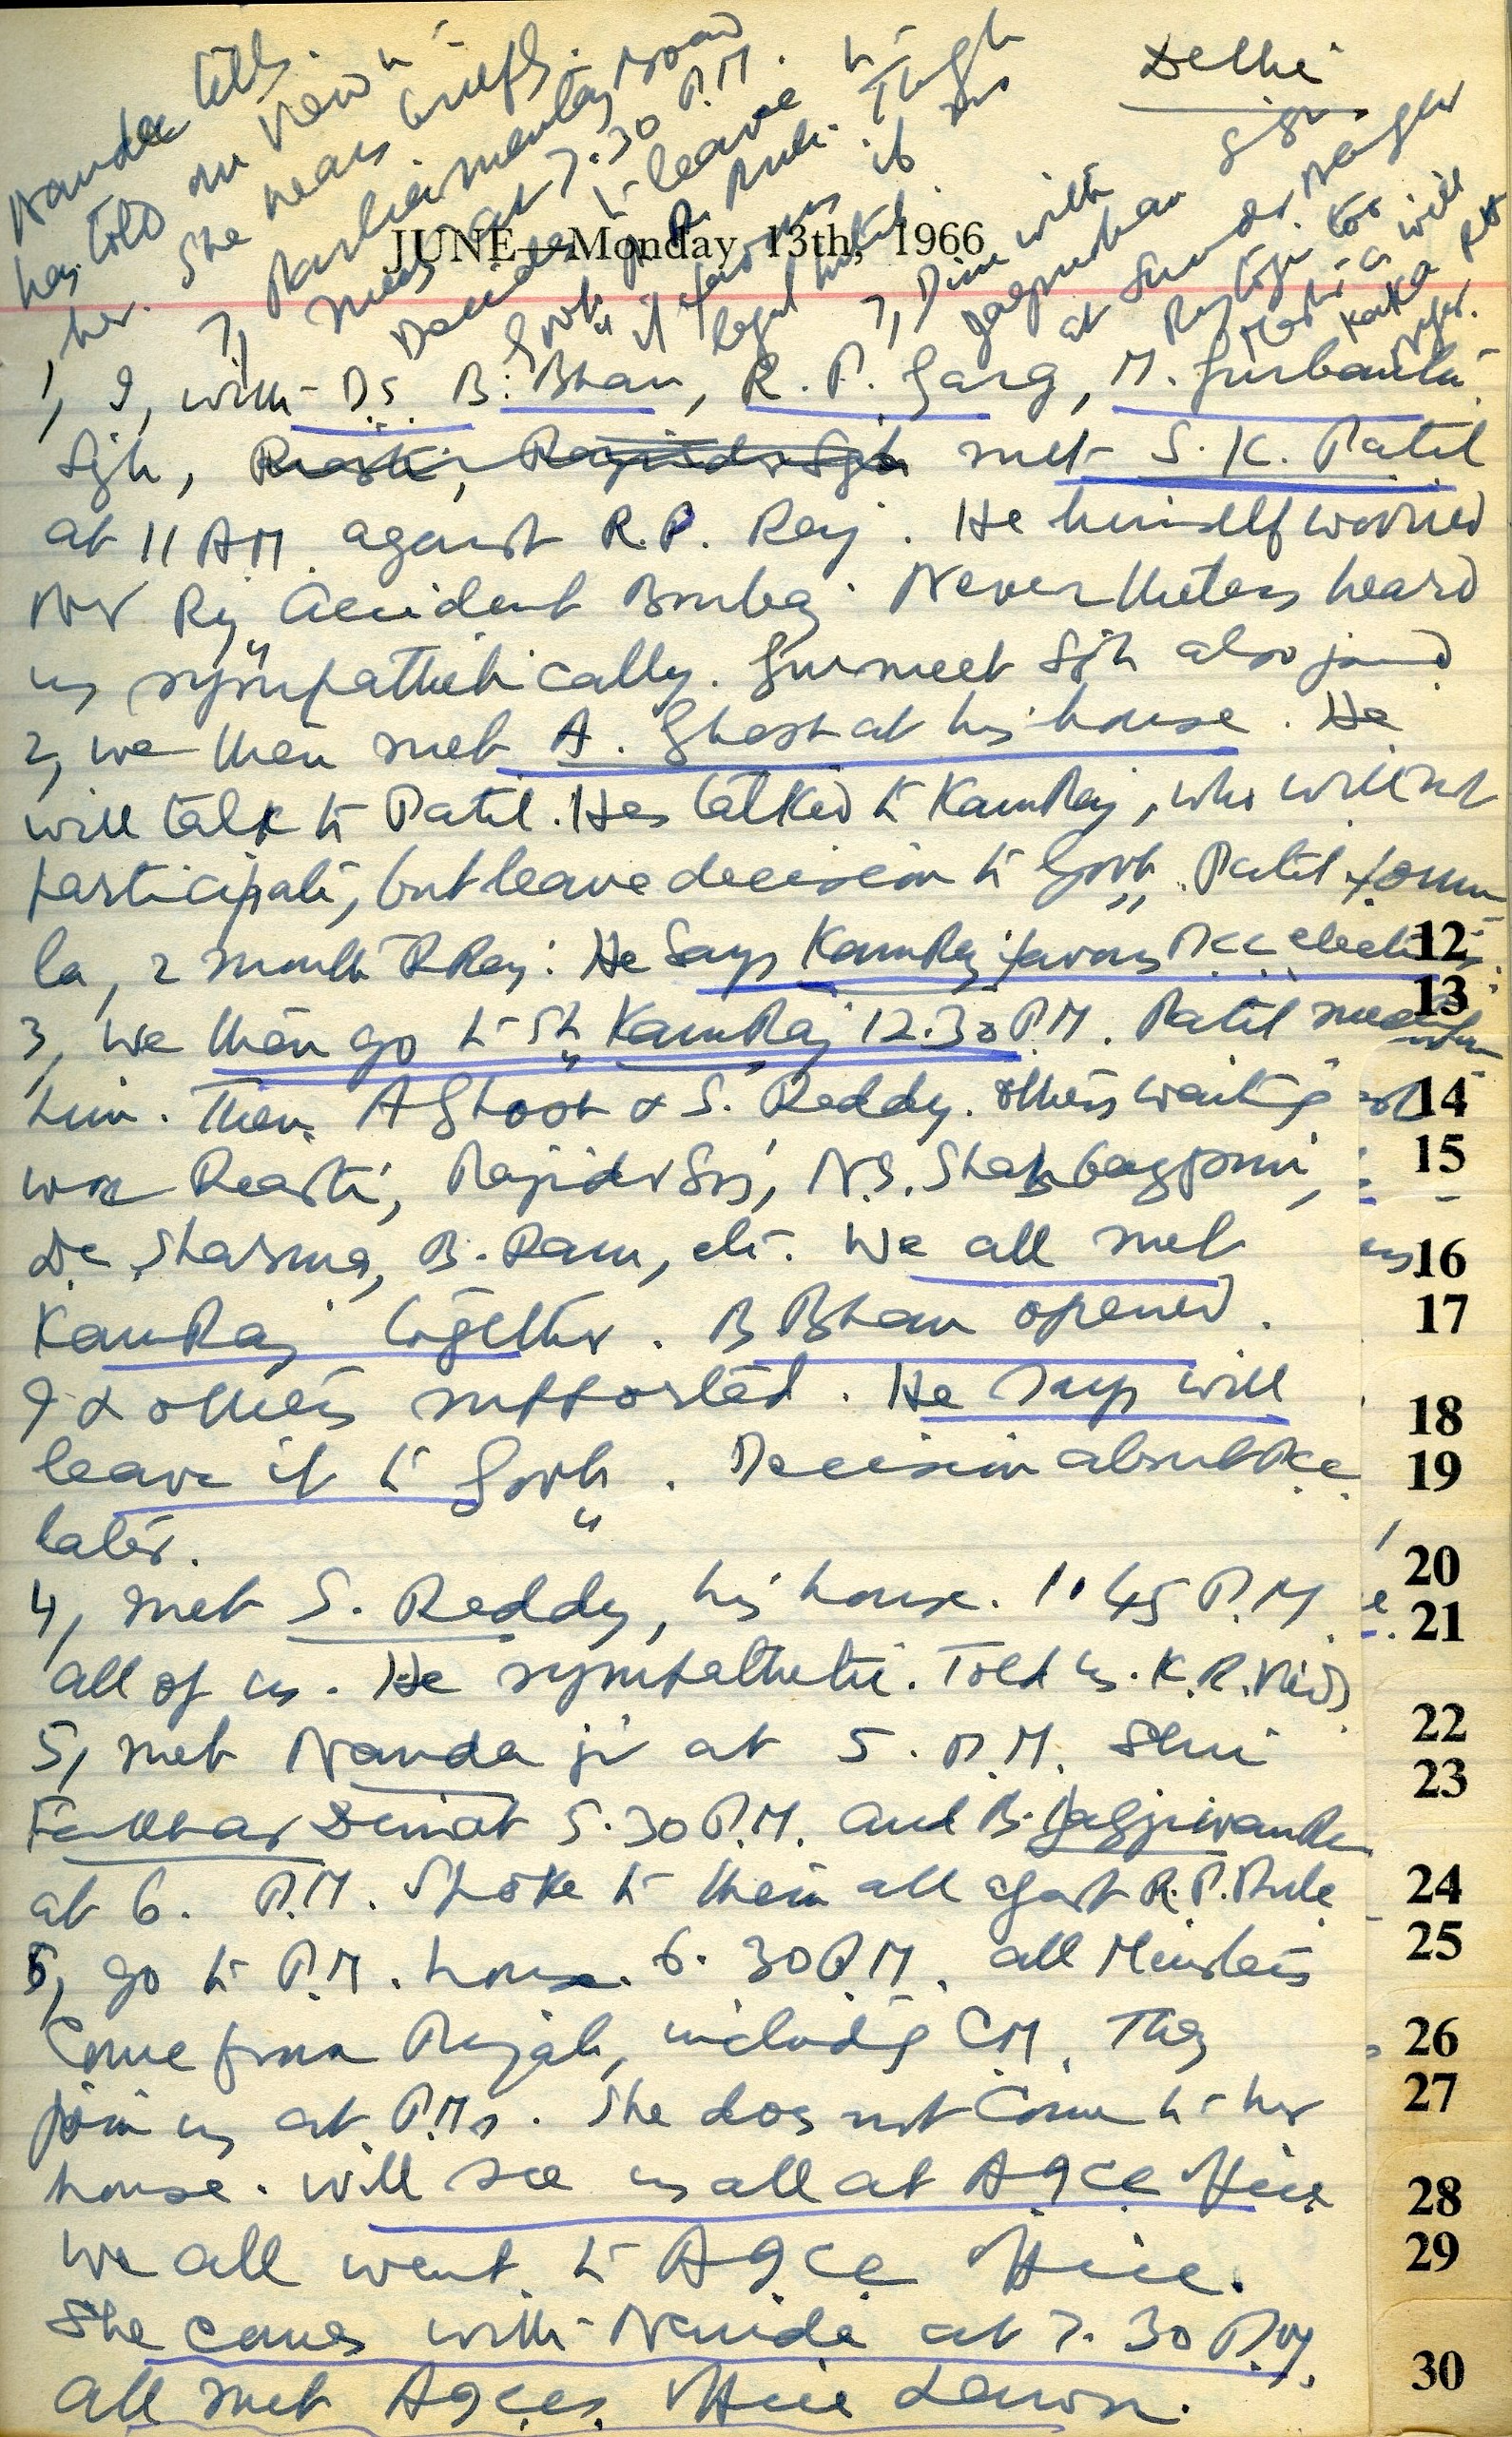 Delhi
JUNE—Monday, 13th, 1966
1, I, with Ds. B. Bhan, R. P. Garg, M. Gurbanta
Sgh, met S. K. Patil
at 11 AM against R.P. Raj. He himself worried
over Ry. accident Bombay. Never theless heard
us sympathetically. Gurmeet Sgh also joined
2, we then met A. Ghosh at his house. He
will talk to Patil. Has talked to KamRaj, who will not
participate, but leave decision to Govt. Patil formu
la, 2 month P Raj. He says KamRaj favors PCC elections.
3, We then go to Sh KamRaj 12.30 P.M. Patil
him. Then A Ghosh & S. Reddy. others waiting
were Rajider Sgh, N.S.
De Sharma, B. Ram, etc. We all met
KamRaj together. B Bhan opened.
I & others supported. He says will
leave it to Govt. Decision about PCC
later.
4, met S. Reddy, his house. 1.45 P.M.
all of us. He sympathetic. Told us. K. R.
5, met Nanda ji at 5. P.M. Shri
Fakhar Din at 5.30 P.M. and B. JagjiwanRam
at 6. P.M. Spoke to them all agast R. P. Rule
6, go to P.M. house. 6.30 P.M. all Ministers
Come from Punjab, including CM. They
join us at P.Ms. She does not Come to her
house. will see us all at AICC Office
We all went to AICC Office.
She comes with Nanda at 7.30 P.M.
all met AICCs Office Lawn.
Nanda tells
has told our view to
her. She hears briefly.
7, Parliamentary Board
meets at 7.30 P.M.
Decides to leave to
Govt P. Rule. Though
it favours it
7, Dine with
at Sundar Nagar
12
13
14
15
16
17
18
19
20
21
22
23
24
25
26
27
28
29
30